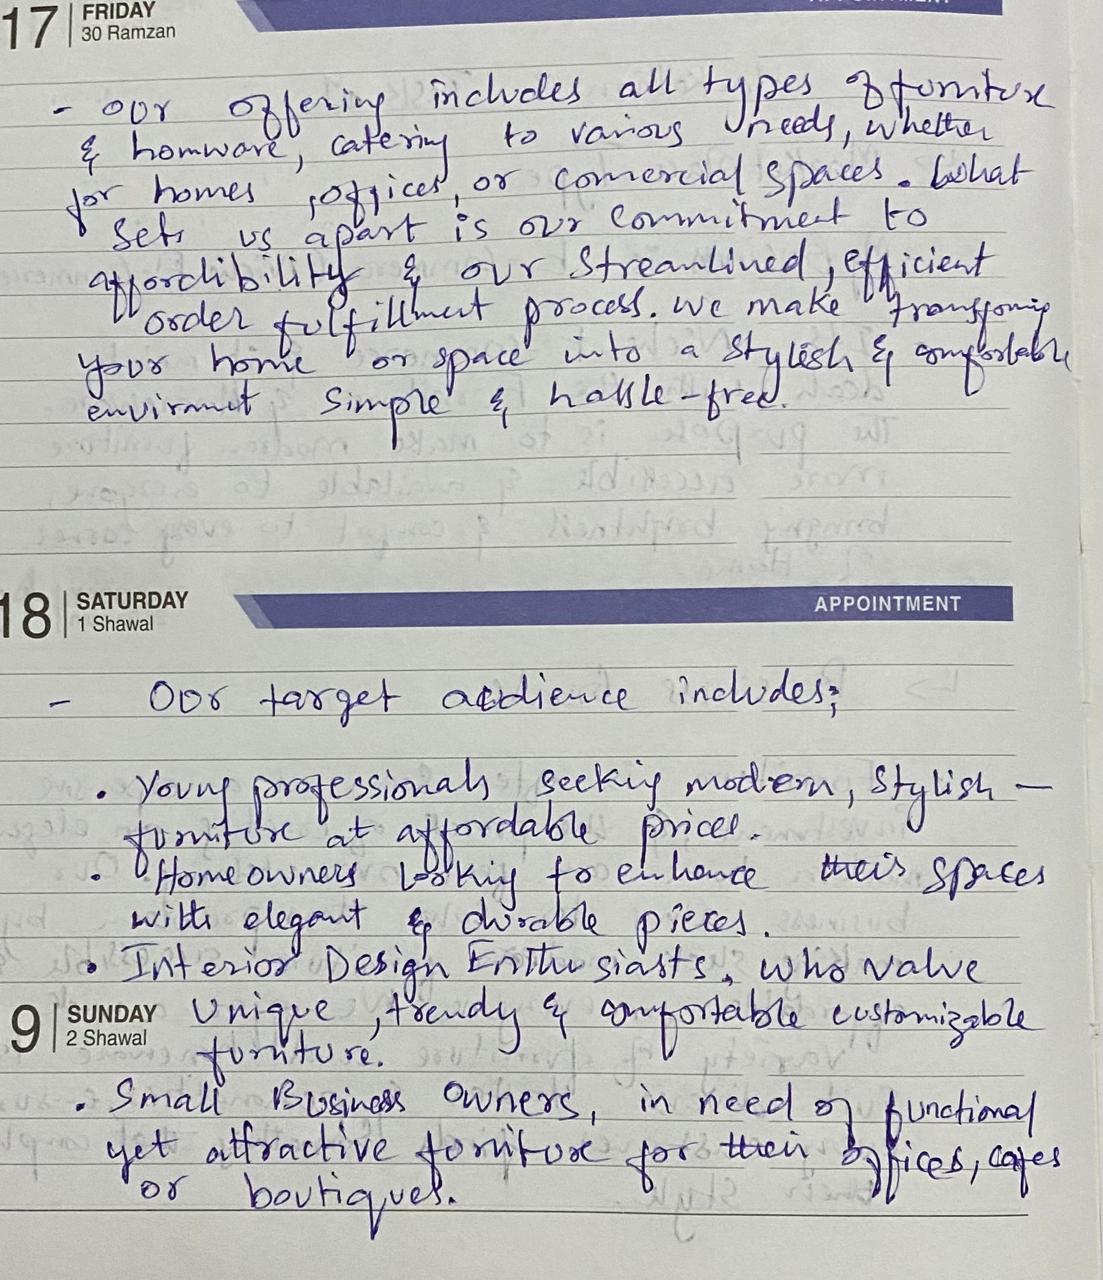 17 FRIDAY
30 Ramzan
- our offering includes all types of furniture
& homware, catering to various needs, whether
for homes, offices, or comercial spaces. What
sets us apart is our commitment to
affordibility & our streamlined, efficient
order fulfillment process. we make transforming
your home or space into a stylish & comfortable
envirmnt simple & hassle-free.
18 SATURDAY APPOINTMENT
1 Shawal
- Our target audience includes;
• Young professionals seeking modern, stylish -
furniture at affordable prices.
• Homeowners looking to enhance their spaces
with elegant & durable pieces.
• Interior Design Enthusiasts, who value
9 SUNDAY unique, trendy & comfortable customizable
2 Shawal furniture.
• Small Business Owners, in need of functional
yet attractive furniture for their offices, cafes
or boutiques.